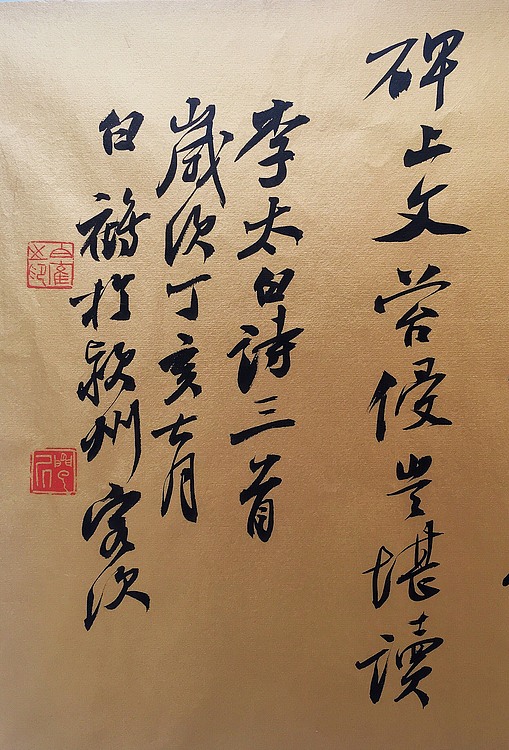 碑上文苔侵豈堪讀
李太白詩三首
歲次丁亥七月
白鶴於潁州客次